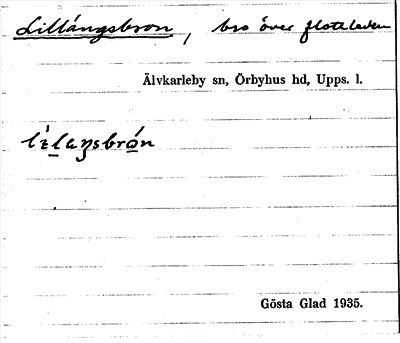 Lillångsbron, bro över flottleden
Älvkarleby sn, Örbyhus hd, Upps. l.
lílaŋsbrón
Gösta Glad 1935.